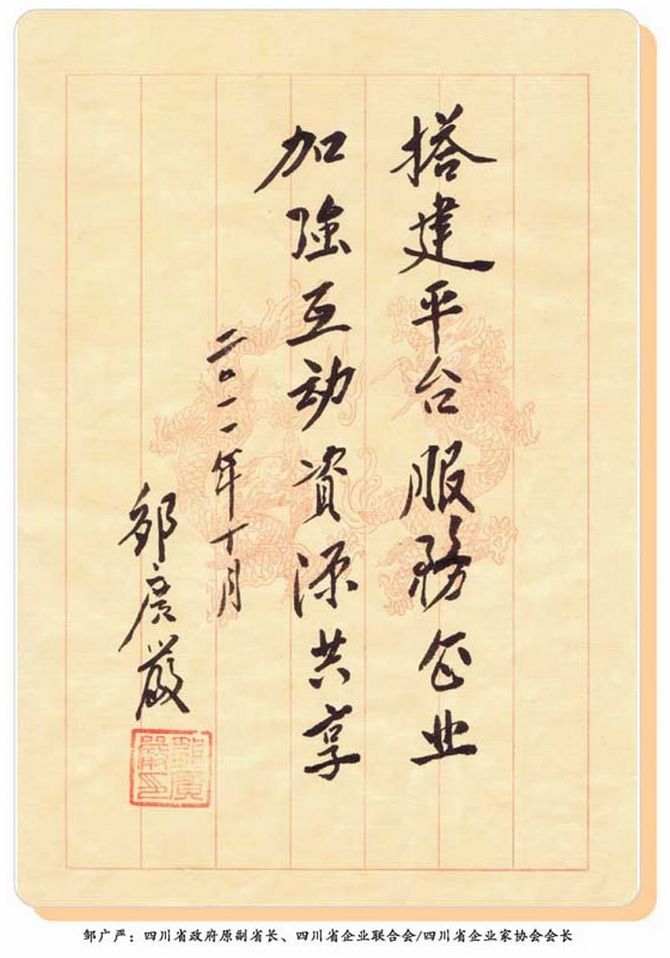 搭建平台服務企业
加強互动資源共享
二〇一一年十月
邹广嚴
邹广严：四川省政府原副省长、四川省企业联合会/四川省企业家协会会长